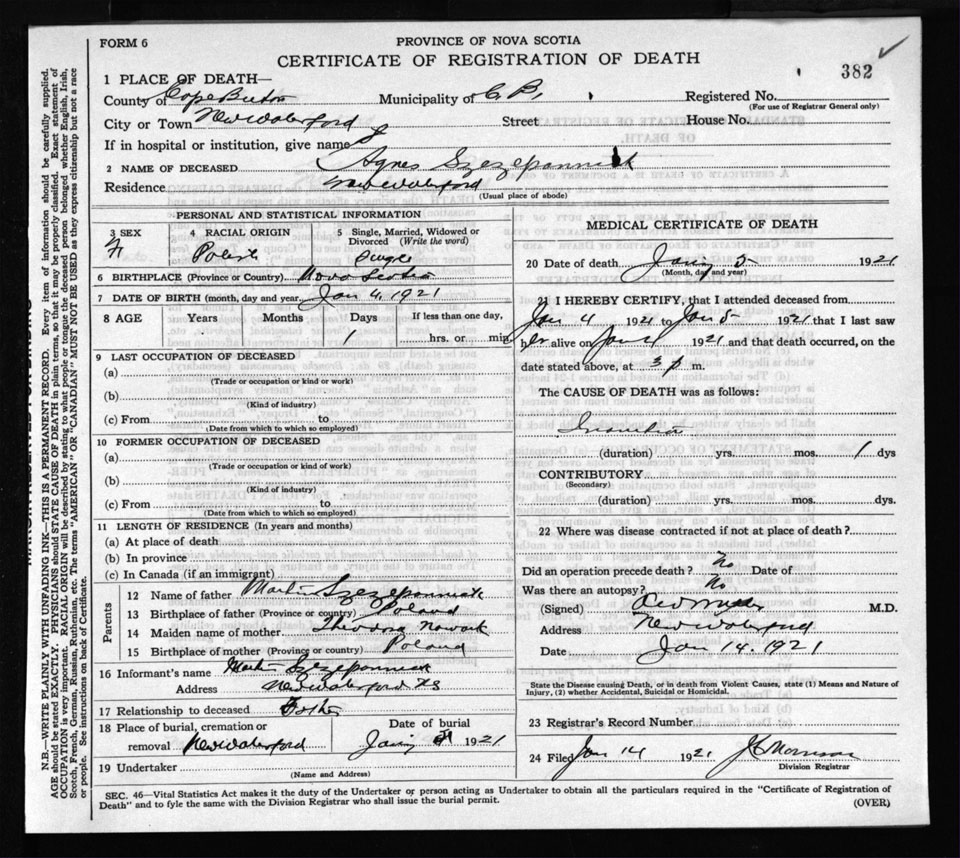 FORM 6
PROVINCE OF NOVA SCOTIA
CERTIFICATE OF REGISTRATION OF DEATH
382
1 PLACE OF DEATH—
County of Cape Breton Municipality of C.B. Registered No.
(For use of Registrar General only)
City or Town New Waterford Street House No.
If in hospital or institution, give name
2 NAME OF DECEASED Agnes Szezepanniak
Residence New Waterford
(Usual place of abode)
PERSONAL AND STATISTICAL INFORMATION
3 SEX 4 RACIAL ORIGIN 5 Single, Married, Widowed or Divorced (Write the word)
F Polish Single
6 BIRTHPLACE (Province or Country) Nova Scotia
7 DATE OF BIRTH (month, day and year) Jan 4, 1921
8 AGE Years Months Days If less than one day,
1 hrs. or min.
9 LAST OCCUPATION OF DECEASED
(a)
(Trade or occupation or kind or work)
(b)
(Kind of industry)
(c) From to
(Date from which to which so employed)
10 FORMER OCCUPATION OF DECEASED
(a)
(Trade or occupation or kind of work)
(b)
(Kind of industry)
(c) From to
(Date from which to which so employed)
11 LENGTH OF RESIDENCE (In years and months)
(a) At place of death
(b) In province
(c) In Canada (if an immigrant)
Parents
12 Name of father Martin Szezepanniak
13 Birthplace of father (Province or country) Poland
14 Maiden name of mother Nowack
15 Birthplace of mother (Province or country) Poland
16 Informant's name Martin Szezepanniak
Address New Waterford NS
17 Relationship to deceased Father
18 Place of burial, cremation or removal New Waterford
Date of burial Jany 1921
19 Undertaker
(Name and Address)
MEDICAL CERTIFICATE OF DEATH
20 Date of death Jany 5 1921
(Month, day and year)
21 I HEREBY CERTIFY, that I attended deceased from
Jan 4 1921 to Jan 5 1921 that I last saw
her alive on Jan 4 1921 and that death occurred, on the
date stated above, at 3 p m.
The CAUSE OF DEATH was as follows:
(duration) yrs. mos. 1 dys
CONTRIBUTORY
(Secondary)
(duration) yrs. mos. dys.
22 Where was disease contracted if not at place of death?
Did an operation precede death? No Date of
Was there an autopsy? No
(Signed) M.D.
Address New Waterford
Date Jan 14. 1921
State the Disease causing Death, or in death from Violent Causes, state (1) Means and Nature of Injury, (2) whether Accidental, Suicidal or Homicidal.
23 Registrar's Record Number
24 Filed Jan 14 1921 Morrison
Division Registrar
SEC. 46—Vital Statistics Act makes it the duty of the Undertaker or person acting as Undertaker to obtain all the particulars required in the "Certificate of Registration of
Death" and to fyle the same with the Division Registrar who shall issue the burial permit.
(OVER)
N.B.—WRITE PLAINLY WITH UNFADING INK—THIS IS A PERMANENT RECORD. Every item of information should be carefully supplied.
AGE should be stated EXACTLY. PHYSICIANS should STATE CAUSE OF DEATH in plain terms, so that it may be properly classified. Exact statement of
OCCUPATION is very important. RACIAL ORIGIN will be described by stating to what people or tongue the deceased person belonged whether English, Irish,
Scotch, French, German, Russian, Ruthenian, etc. The terms "AMERICAN" OR "CANADIAN" MUST NOT BE USED as they express citizenship but not a race
or people. See instructions on back of Certificate.